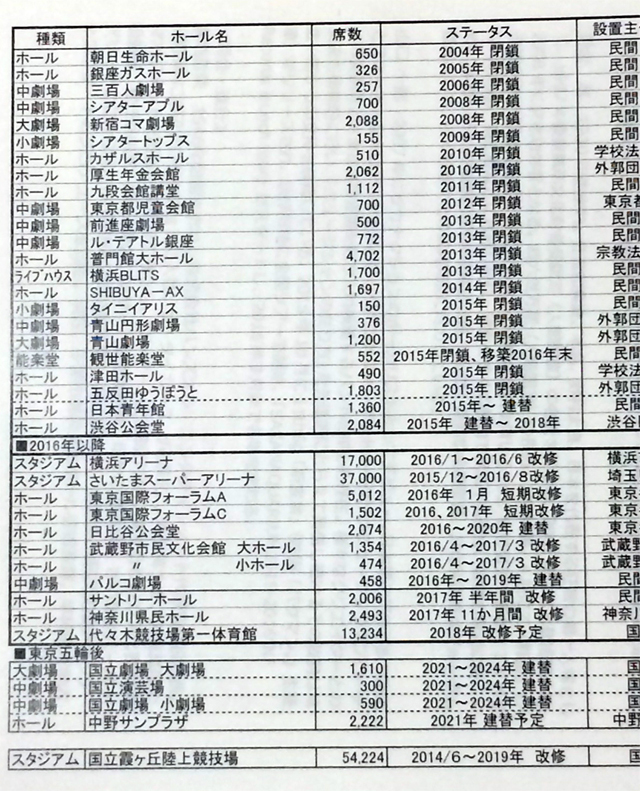 種類 ホール名 席数 ステータス 設置主
ホール 朝日生命ホール 650 2004年 閉鎖 民間
ホール 銀座ガスホール 326 2005年 閉鎖 民間
中劇場 三百人劇場 257 2006年 閉鎖 民間
中劇場 シアターアプル 700 2008年 閉鎖 民間
大劇場 新宿コマ劇場 2,088 2008年 閉鎖 民間
小劇場 シアタートップス 155 2009年 閉鎖 民間
ホール カザルスホール 510 2010年 閉鎖 学校法
ホール 厚生年金会館 2,062 2010年 閉鎖 外郭団
ホール 九段会館講堂 1,112 2011年 閉鎖 民間
中劇場 東京都児童会館 700 2012年 閉鎖 東京都
中劇場 前進座劇場 500 2013年 閉鎖 民間
中劇場 ル・テアトル銀座 772 2013年 閉鎖 民間
ホール 普門館大ホール 4,702 2013年 閉鎖 宗教法
ライブハウス 横浜BLITS 1,700 2013年 閉鎖 民間
ホール SHIBUYA－AX 1,697 2014年 閉鎖 民間
小劇場 タイニイアリス 150 2015年 閉鎖 民間
中劇場 青山円形劇場 376 2015年 閉鎖 外郭団
大劇場 青山劇場 1,200 2015年 閉鎖 外郭団
能楽堂 観世能楽堂 552 2015年閉鎖、移築2016年末 民間
ホール 津田ホール 490 2015年 閉鎖 学校法
ホール 五反田ゆうぽうと 1,803 2015年 閉鎖 外郭団
ホール 日本青年館 1,360 2015年～ 建替 民間
ホール 渋谷公会堂 2,084 2015年 建替～ 2018年 渋谷
■2016年以降
スタジアム 横浜アリーナ 17,000 2016/1～2016/6 改修 横浜
スタジアム さいたまスーパーアリーナ 37,000 2015/12～2016/8改修 埼玉
ホール 東京国際フォーラムA 5,012 2016年 1月 短期改修 東京
ホール 東京国際フォーラムC 1,502 2016、2017年 短期改修 東京
ホール 日比谷公会堂 2,074 2016～2020年 建替 東京
ホール 武蔵野市民文化会館 大ホール 1,354 2016/4～2017/3 改修 武蔵野
ホール 〃 小ホール 474 2016/4～2017/3 改修 武蔵野
中劇場 パルコ劇場 458 2016年～ 2019年 建替 民間
ホール サントリーホール 2,006 2017年 半年間 改修 民間
ホール 神奈川県民ホール 2,493 2017年 11か月間 改修 神奈川
スタジアム 代々木競技場第一体育館 13,234 2018年 改修予定 国
■東京五輪後
大劇場 国立劇場 大劇場 1,610 2021～2024年 建替 国
中劇場 国立演芸場 300 2021～2024年 建替 国
中劇場 国立劇場 小劇場 590 2021～2024年 建替 国
ホール 中野サンプラザ 2,222 2021年 建替予定 中野
スタジアム 国立霞ヶ丘陸上競技場 54,224 2014/6～2019年 改修 国